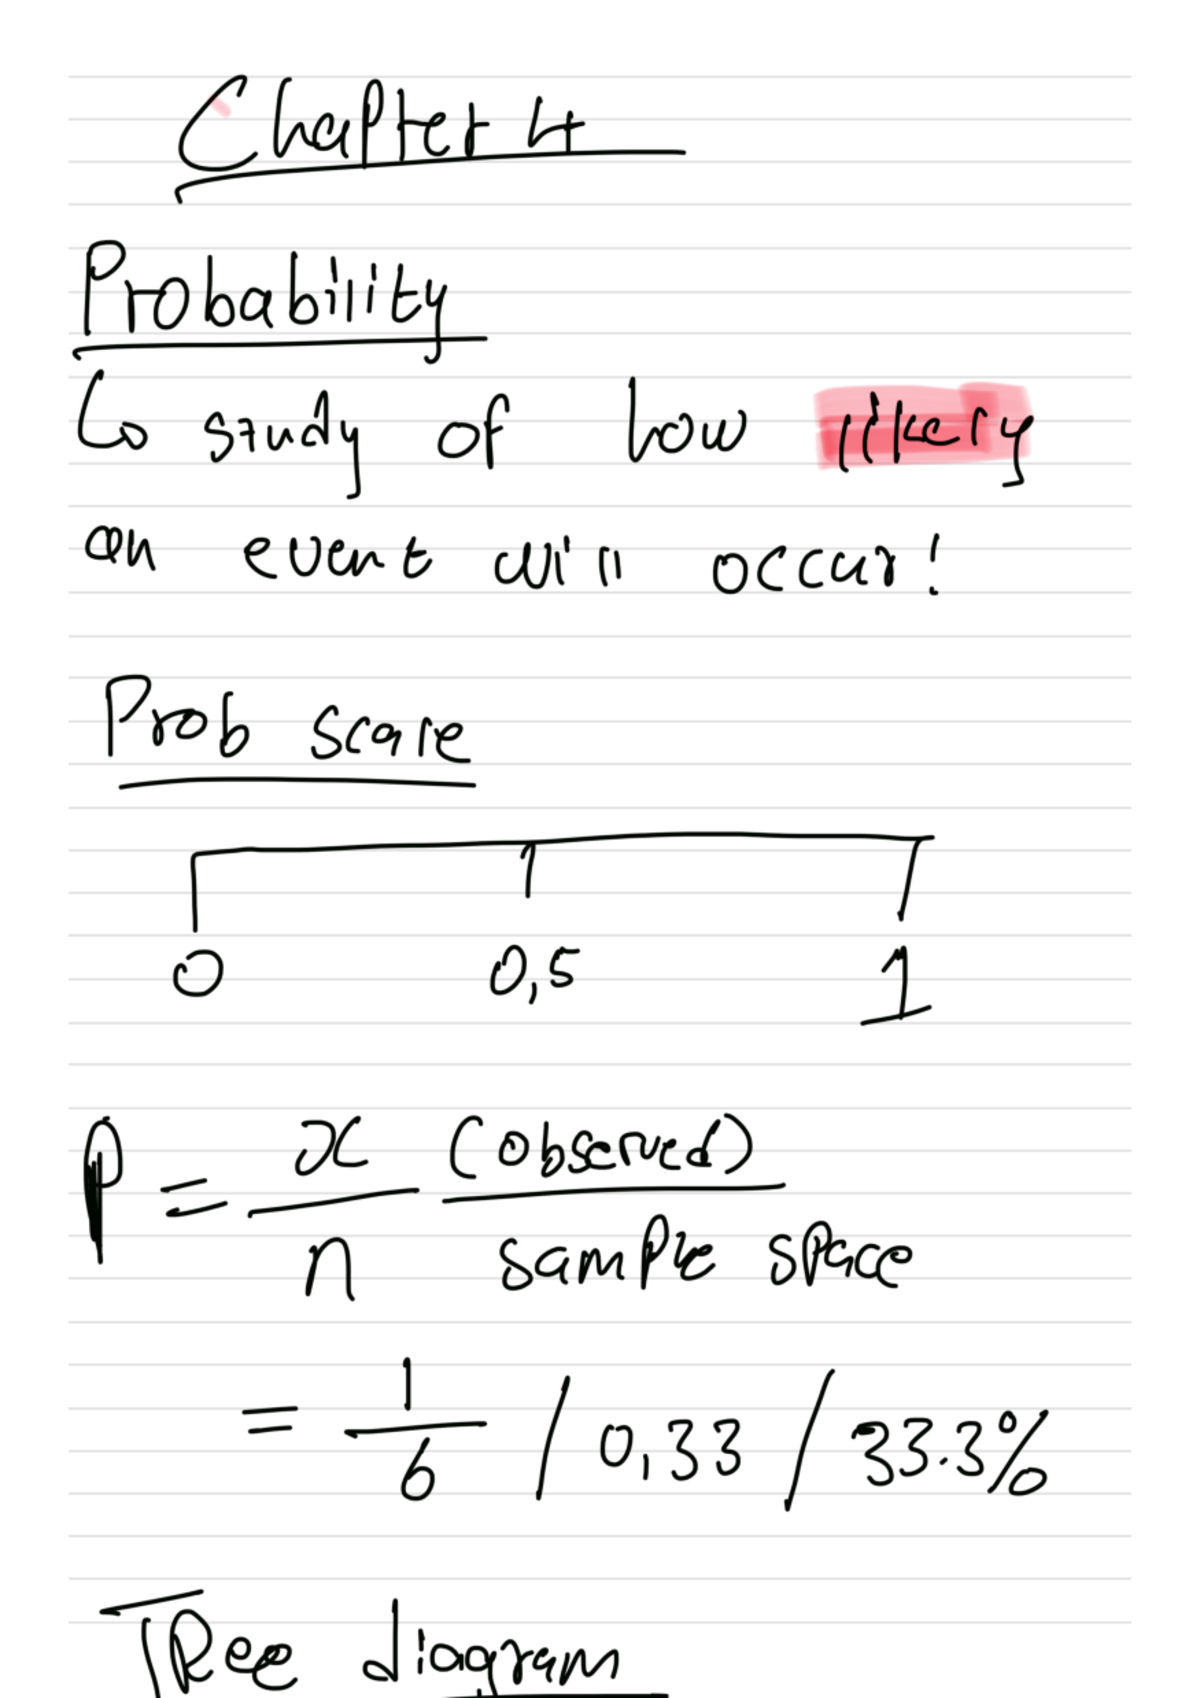 Chapter 4
Probability
↳ study of how likely
an event will occur!
Prob scale
0 0,5 1
P = x (observed)
n sample space
= 1/6 / 0,33 / 33.3%
TRee diagram